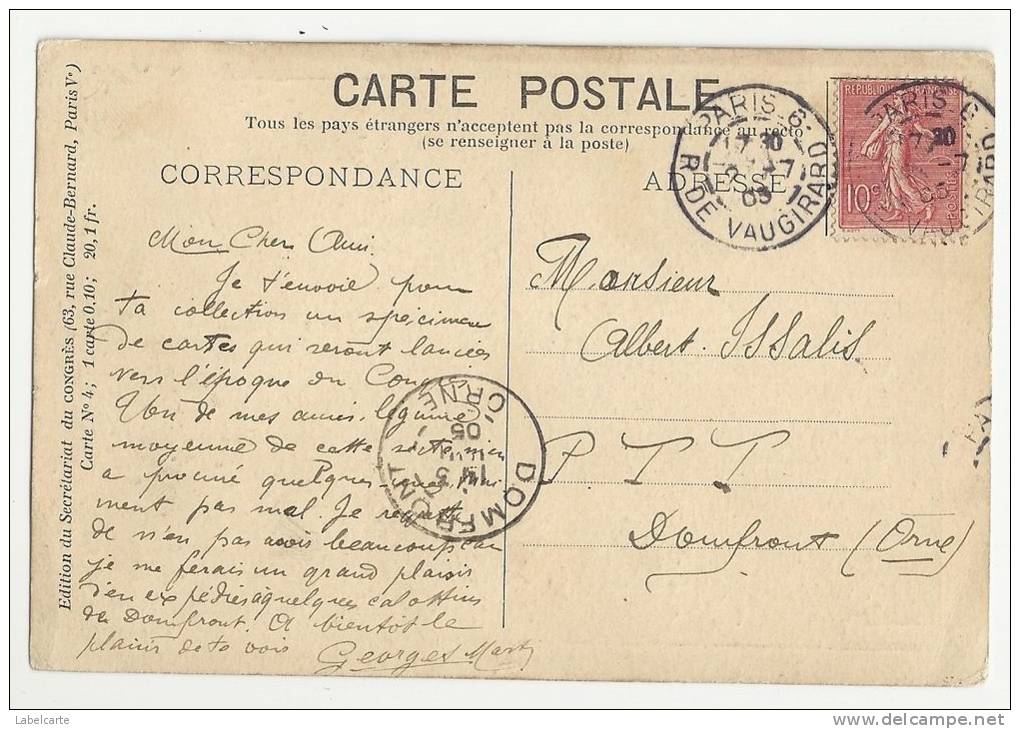 CARTE POSTALE
Tous les pays étrangers n'acceptent pas la correspondance au recto
(se renseigner à la poste)
CORRESPONDANCE
ADRESSE
Edition du Secrétariat du CONGRÈS (63, rue Claude-Bernard, Paris Ve)
Carte No 4; 1 carte 0.10; 20, 1 fr.
PARIS 6.
17 30
7
05
R. DE VAUGIRARD
REPUBLIQUE FRANÇAISE
10c
POSTES
PARIS 6.
VAUGIRARD
Mon Cher Ami
Je t'envoie pour
ta collection un spécimen
de cartes qui seront lancées
vers l'époque du
Un de mes amis,
moyenne de cette
a procuré quelques
ment pas mal. Je
de n'en pas avoir beaucoup car
je me ferais un grand plaisir
d'en expédier à quelques calottins
de Domfront. A bientôt le
plaisir de te voir Georges
DOMFRONT
ORNE
05
Monsieur
Albert Issalis
P. T. T
Domfront (Orne)
Labelcarte
www.delcampe.net